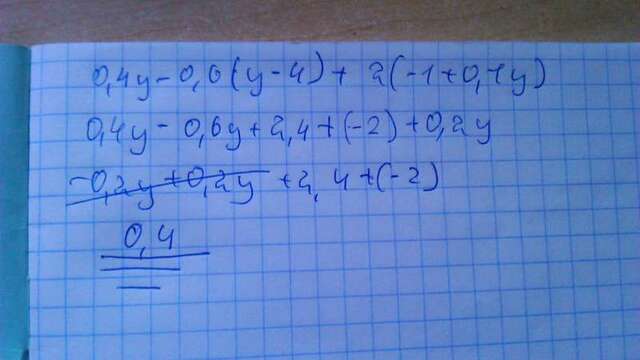 0,4y-0,6(y-4)+2(-1+0,1y)
0,4y-0,6y+2,4+(-2)+0,2y
-0,2y+0,2y+2,4+(-2)
0,4